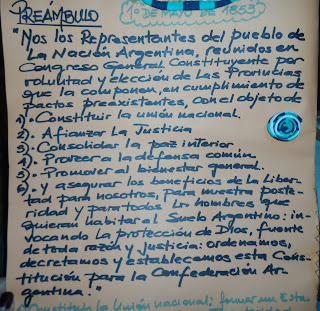 PREÁMBULO
1º DE MAYO DE 1853
"Nos los Representantes del pueblo de
La Nación Argentina, reunidos en
Congreso General Constituyente por
voluntad y elección de las Provincias
que la componen, en cumplimiento de
pactos preexistentes, con el objeto de
1). Constituir la unión nacional.
2). Afianzar La Justicia
3). Consolidar la paz interior
4). Proveer a la defensa común.
5). Promover al bienestar general.
6). y asegurar los beneficios de la liber-
tad para nosotros, Para nuestra poste-
ridad y para todos Ls hombres que
quieran habitar al Suelo Argentino: in-
vocando La protección de Dios, fuente
de toda razón y justicia: ordenamos,
decretamos y establecemos esta Cons-
titución para la Confederación Ar-
gentina."
Constituir la Unión nacional: formar un Esta-